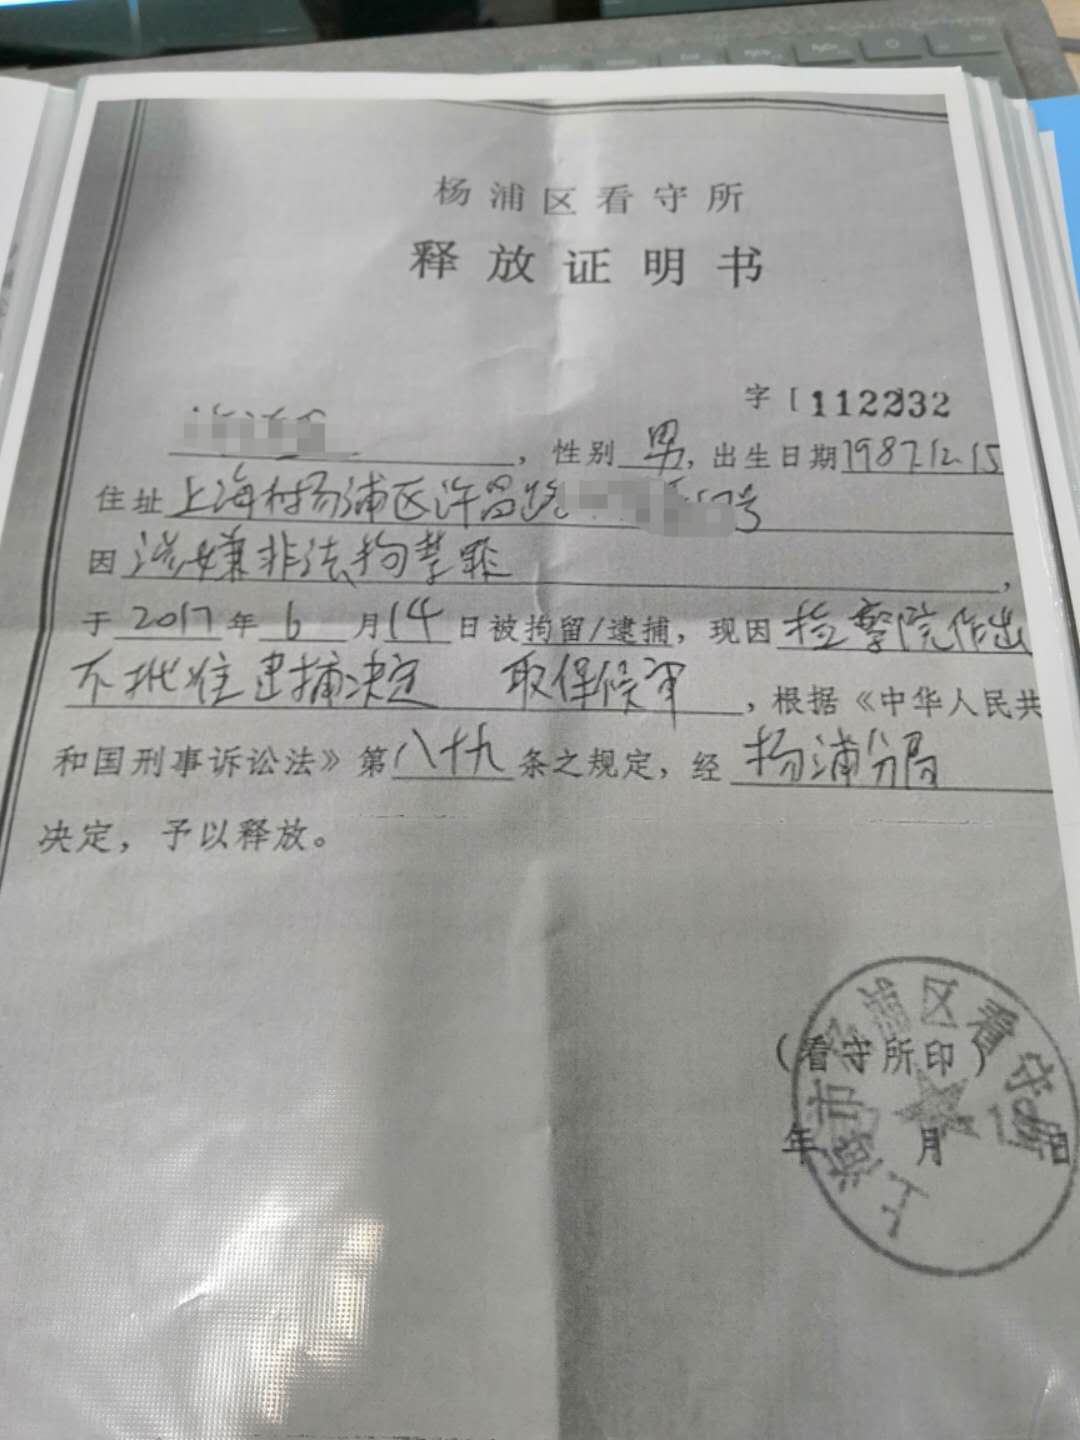 杨浦区看守所
释放证明书
字[112232
，性别 男，出生日期 1987.12.15
住址 上海市杨浦区许昌路 号
因 涉嫌非法拘禁罪，
于 2017 年 6 月 14 日被拘留/逮捕，现因 检察院作出
不批准逮捕决定 取保候审，根据《中华人民共
和国刑事诉讼法》第 八十九 条之规定，经 杨浦分局
决定，予以释放。
上海市杨浦区看守所
（看守所印）
年 月 日